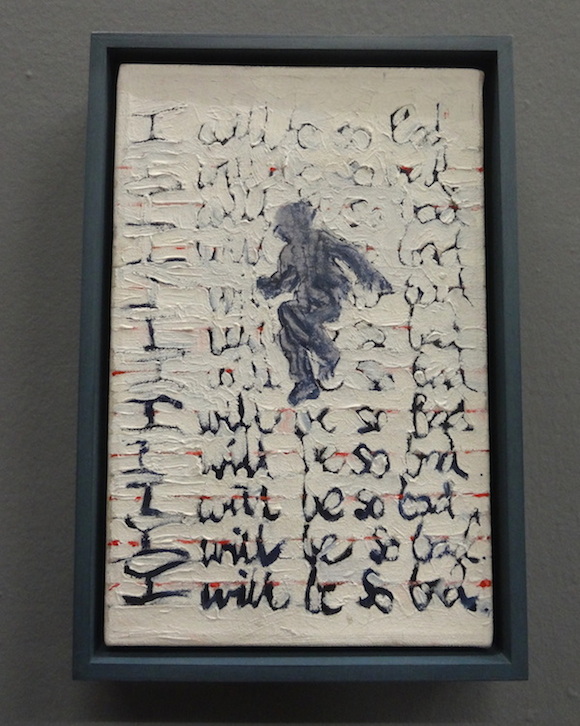 I will be so bad
I will be so bad
I will so bad
I will bad
I bad
I will so
I will so bad
I will be so bad.
I will be so bad
I will be so bad.
I will be so bad.
I will be so bad.